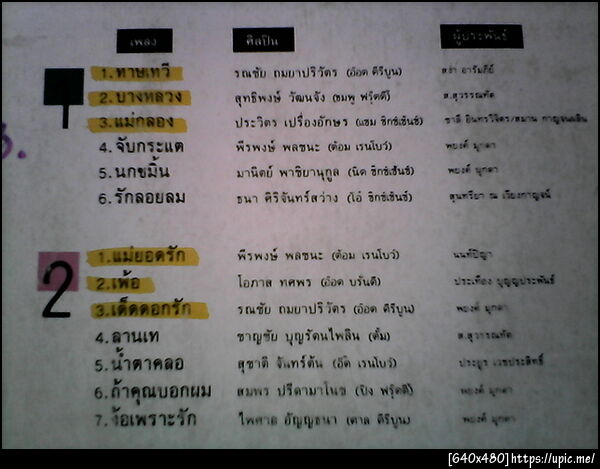 เพลง ศิลปิน ผู้ประพันธ์
1
1. ทาษเทวี รณชัย ถมยาปริวัตร (อ๊อด คีรีบูน) สง่า อารัมภีย์
2. บางหลวง สุทธิพงษ์ วัฒนจัง (ชมพู ฟรุ๊ตตี้) ส.สุวรรณทัต
3. แม่กลอง ประวิตร เปรื่องอักษร (แซม ซิกซ์เซ้นซ์) ชาลี อินทรวิจิตร/สมาน กาญจนผลิน
4. จับกระแต พีรพงษ์ พลชนะ (ต้อม เรนโบว์) พยงค์ มุกดา
5. นกขมิ้น มานิตย์ พาชิยานุกูล (นิด ซิกซ์เซ้นซ์) พยงค์ มุกดา
6. รักลอยลม ธนา ศิริจันทร์สว่าง (โอ๋ ซิกซ์เซ้นซ์) สุนทรียา ณ เวียงกาญจน์
2
1. แม่ยอดรัก พีรพงษ์ พลชนะ (ต้อม เรนโบว์) นนท์ปัญา
2. เพ้อ โอภาส ทศพร (อ๊อด บรั่นดี) ประเทือง บุญญประพันธ์
3. เด็ดดอกรัก รณชัย ถมยาปริวัตร (อ๊อด คีรีบูน) พยงค์ มุกดา
4. ลานเท ชาญชัย บุญรัตนไพลิน (ตั้ม) ส.สุวรรณทัต
5. น้ำตาคลอ สุชาติ จันทร์ต้น (อ๊ด เรนโบว์) ประยูร เวชประสิทธิ์
6. ถ้าคุณบอกผม สมพร ปรีดามาโนช (ปิง ฟรุ๊ตตี้) พยงค์ มุกดา
7. ง้อเพราะรัก ไพศาล อัญญธนา (ตาล คีรีบูน) พยงค์ มุกดา
[640x480]https://upic.me/